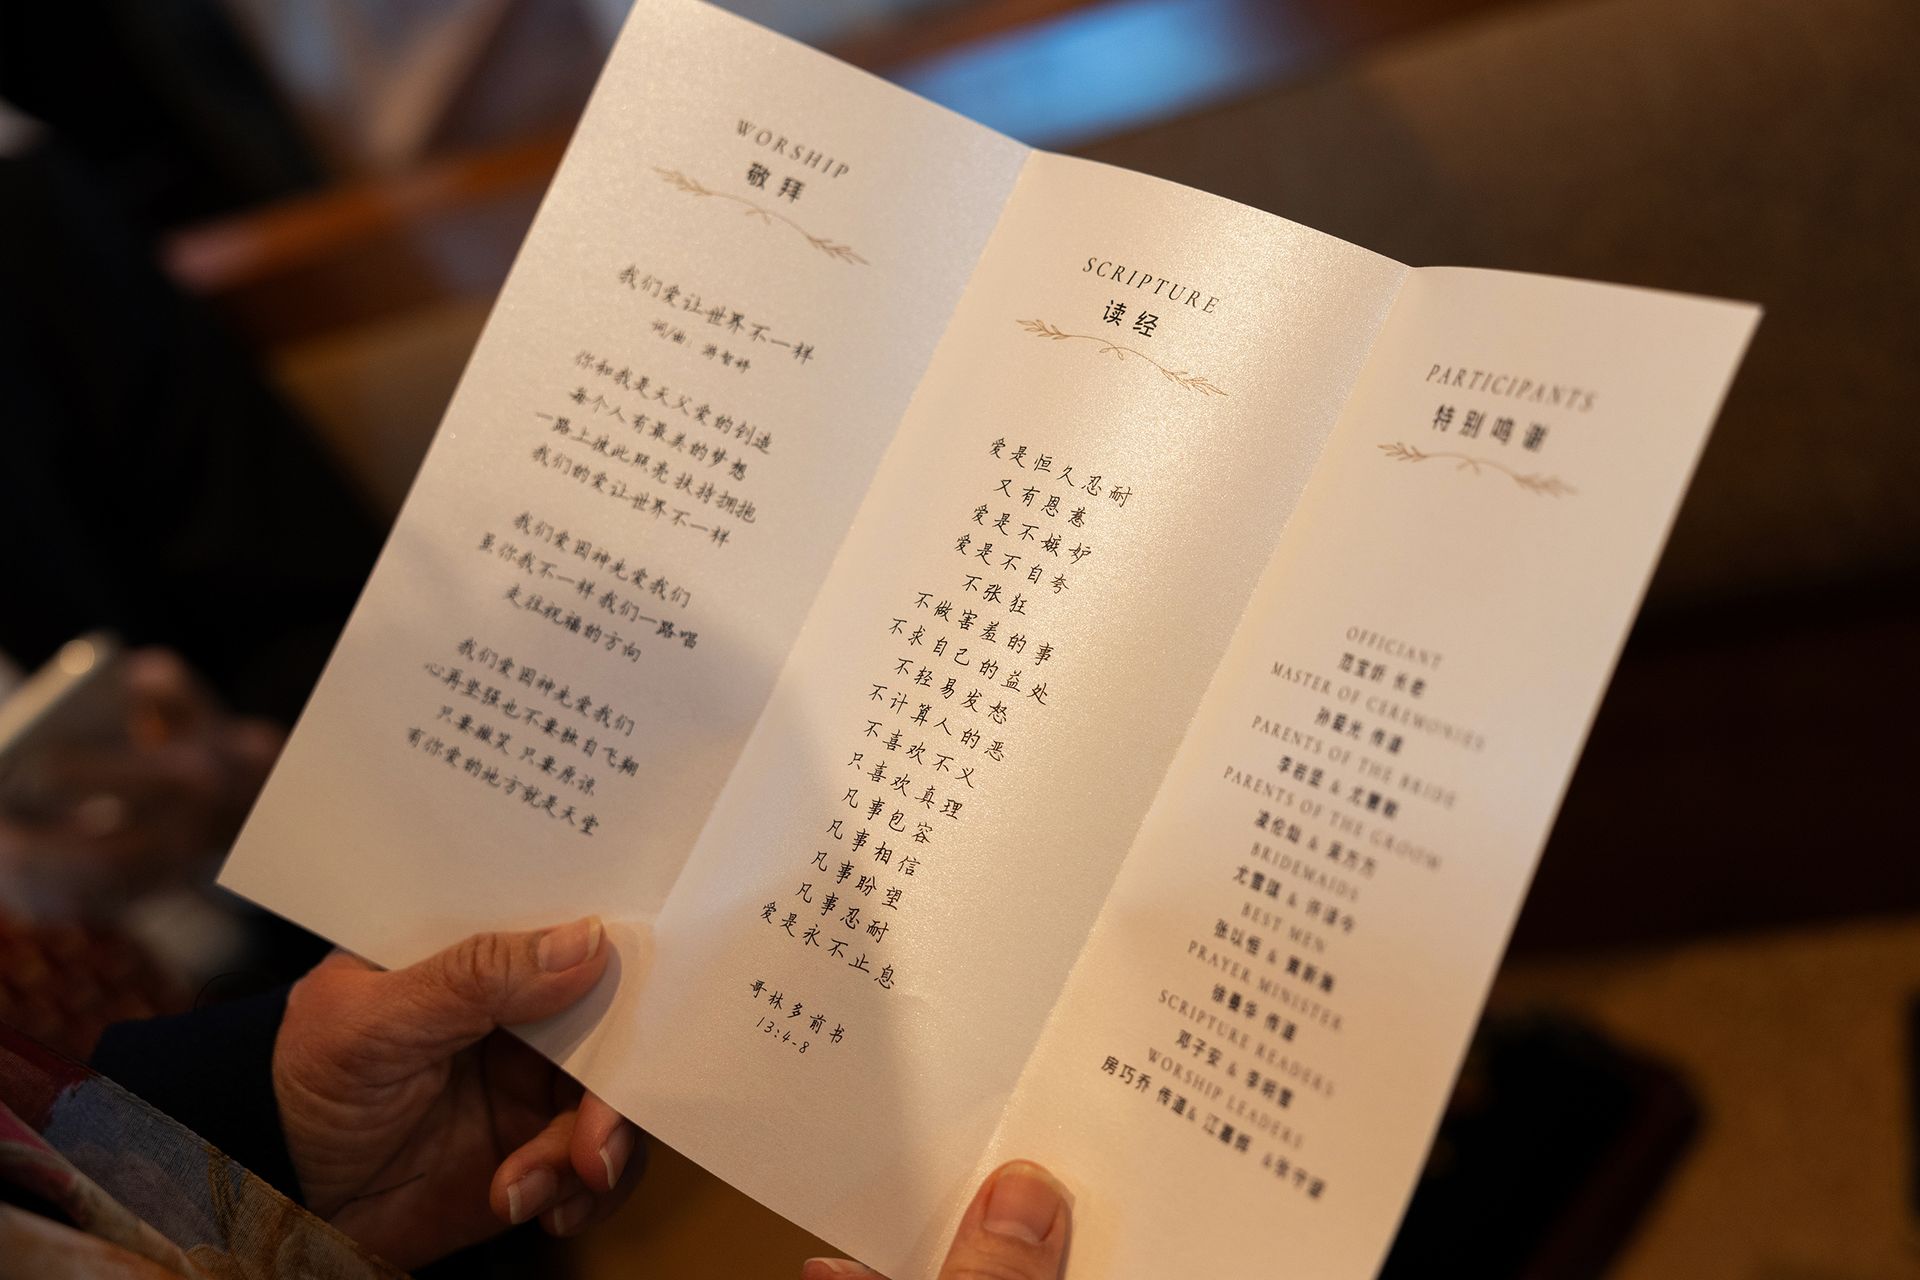 WORSHIP
敬拜
我们爱让世界不一样
词/曲：游智婷
你和我是天父爱的创造
每个人有最美的梦想
一路上彼此照亮 扶持拥抱
我们的爱让世界不一样
我们爱因神先爱我们
虽你我不一样 我们一路唱
走往祝福的方向
我们爱因神先爱我们
心再坚强也不要独自飞翔
只要微笑 只要原谅
有你爱的地方就是天堂
SCRIPTURE
读经
爱是恒久忍耐
又有恩慈
爱是不嫉妒
爱是不自夸
不张狂
不做害羞的事
不求自己的益处
不轻易发怒
不计算人的恶
不喜欢不义
只喜欢真理
凡事包容
凡事相信
凡事盼望
凡事忍耐
爱是永不止息
哥林多前书
13:4-8
PARTICIPANTS
特别鸣谢
OFFICIANT
范宝昕 长老
MASTER OF CEREMONIES
孙 光 传道
PARENTS OF THE BRIDE
李 & 尤
PARENTS OF THE GROOM
凌伦灿 & 吴杰杰
BRIDEMAIDS
尤雪琪 & 许读今
BEST MEN
张以恒 & 黄新瀚
PRAYER MINISTER
徐曼华 传道
SCRIPTURE READERS
邓子安 & 李
WORSHIP LEADERS
房巧乔 传道& 江嘉辉 &张守望